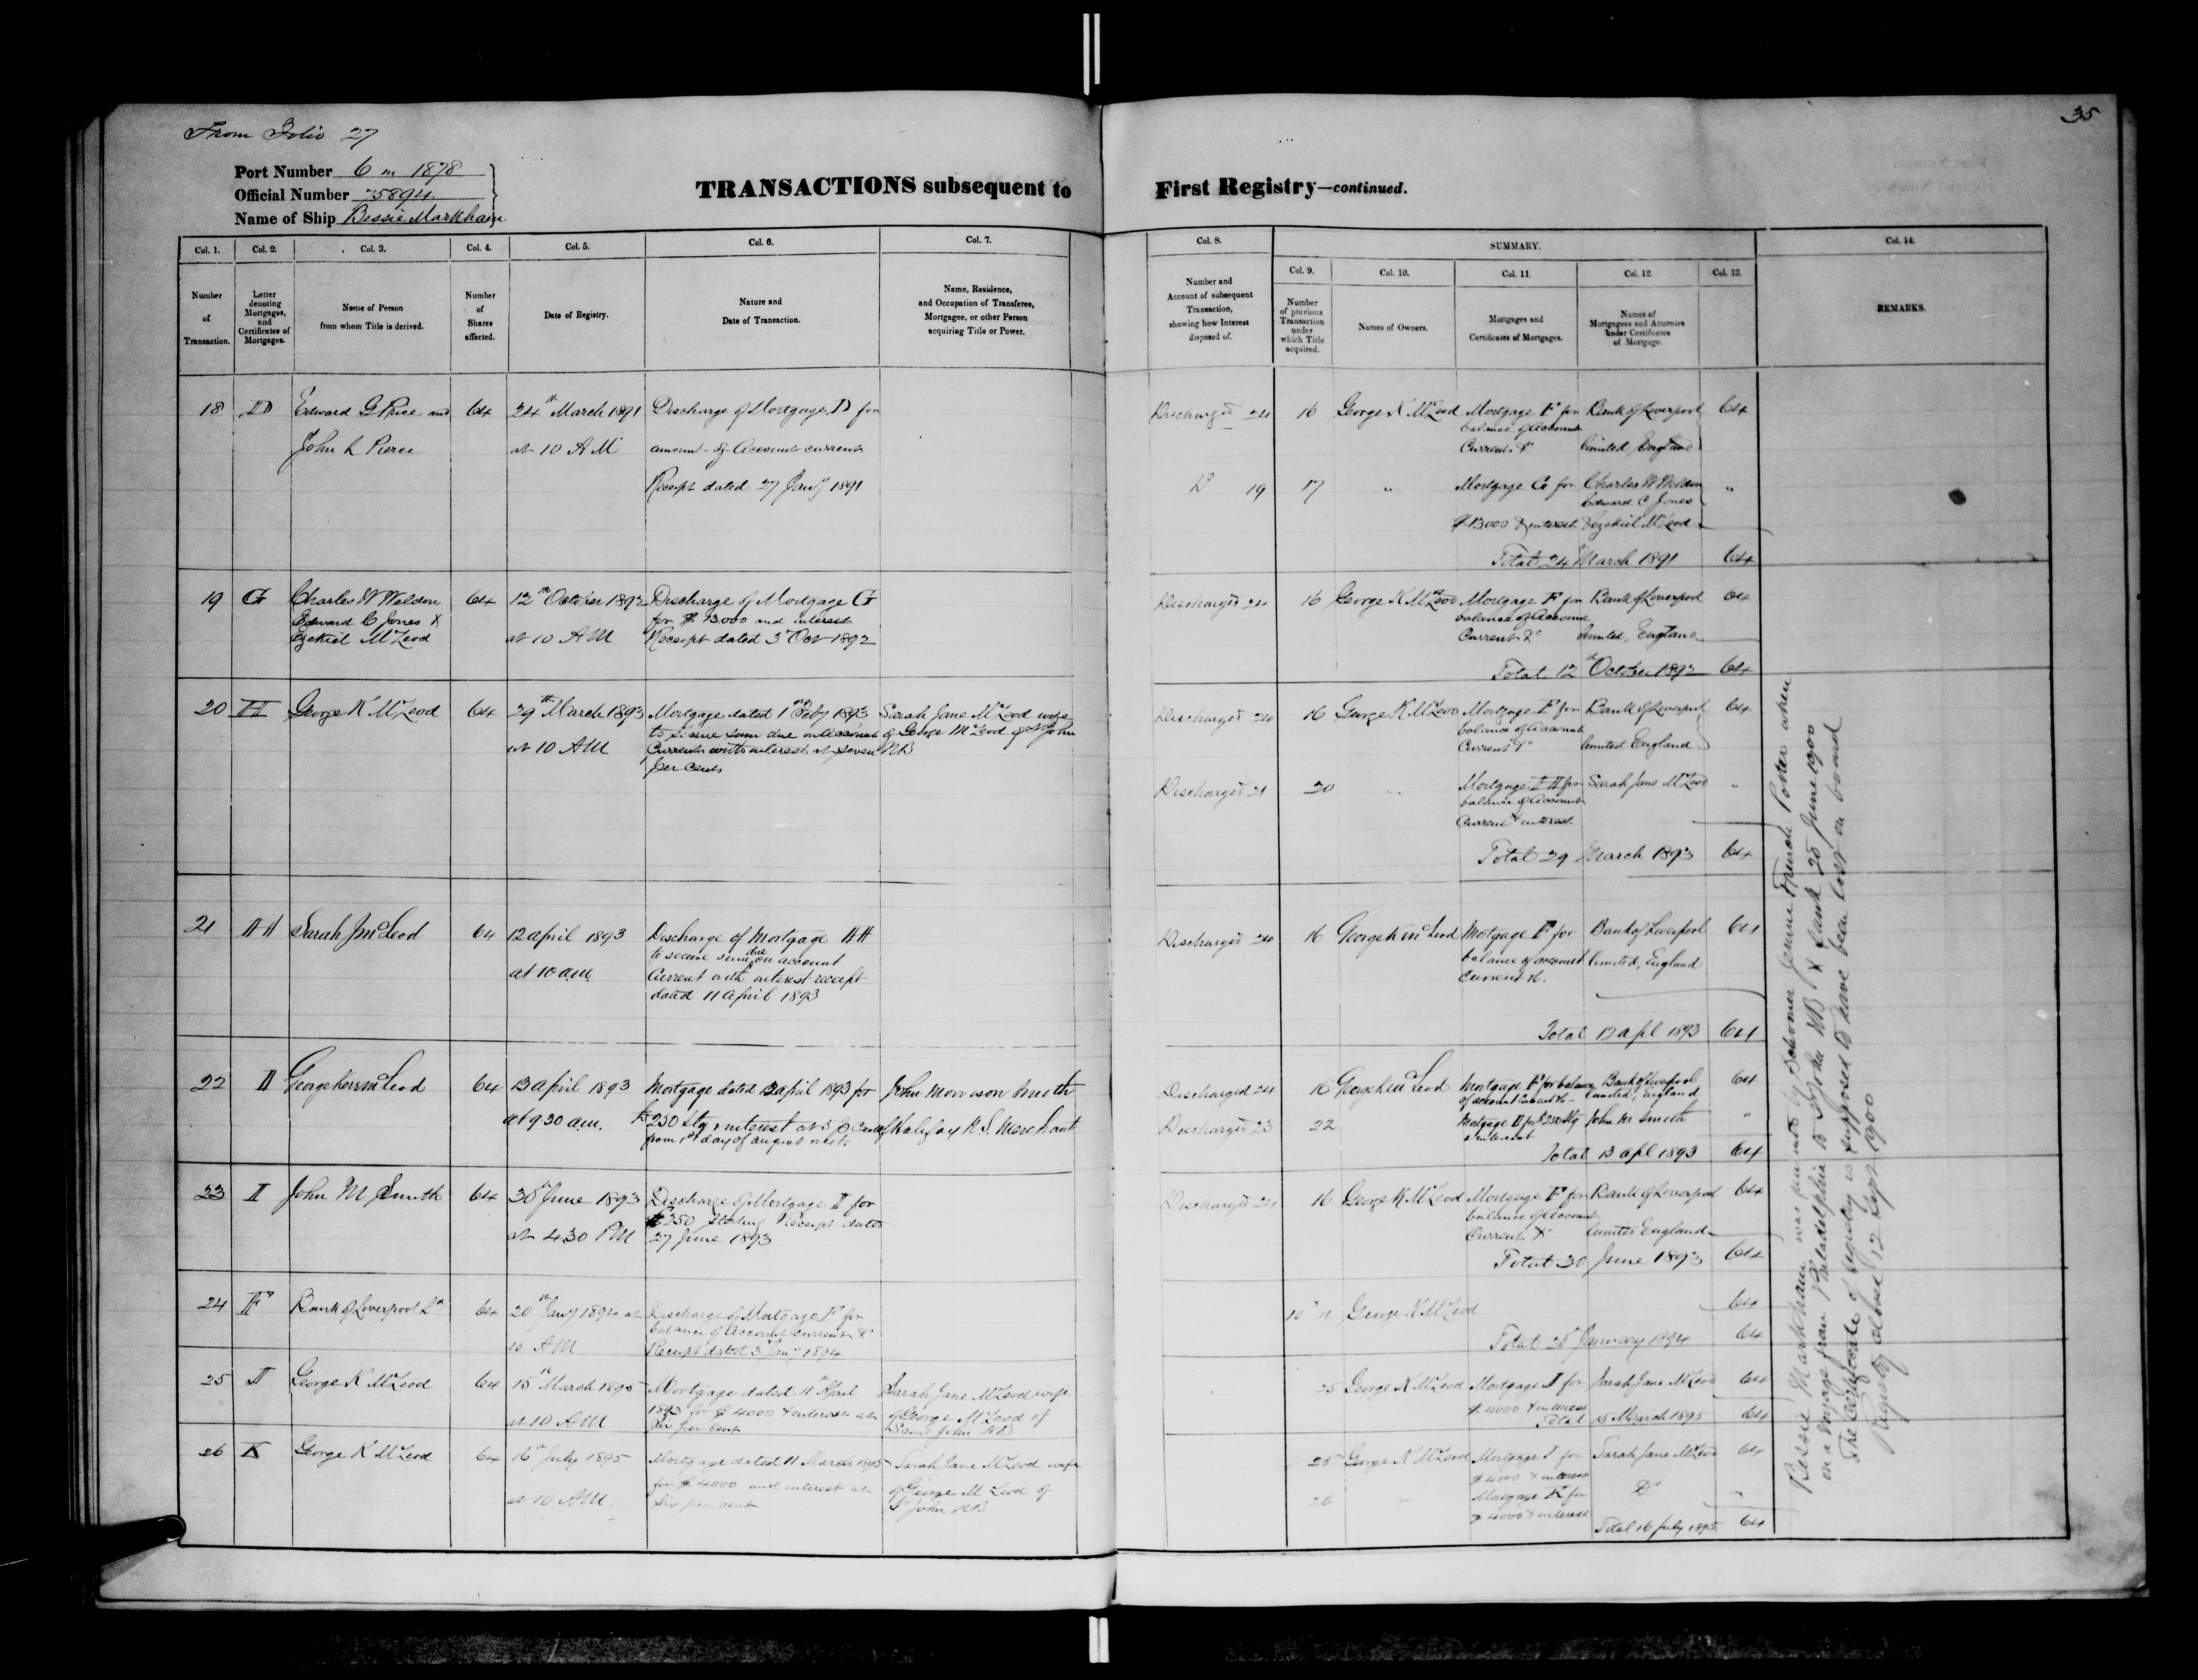 35
From Folio 27
Port Number 6 in 1878
Official Number 75894
Name of Ship Bessie Markham
TRANSACTIONS subsequent to First Registry—continued.
Col. 1. Col. 2. Col. 3. Col. 4. Col. 5. Col. 6. Col. 7.
Number of Transaction.
Letter denoting Mortgages, and Certificates of Mortgages.
Name of Person from whom Title is derived.
Number of Shares affected.
Date of Registry.
Nature and Date of Transaction.
Name, Residence, and Occupation of Transferee, Mortgagee, or other Person acquiring Title or Power.
Col. 8.
Number and Account of subsequent Transaction, showing how Interest disposed of.
SUMMARY.
Col. 9. Col. 10. Col. 11. Col. 12. Col. 13.
Number of previous Transaction under which Title acquired.
Names of Owners.
Mortgages and Certificates of Mortgages.
Names of Mortgagees and Attornies under Certificates of Mortgage.
Col. 14.
REMARKS.
18 D Edward G Price and 64 24th March 1891 Discharge of Mortgage D for
John L Pierce at 10 AM amount of Account current
Receipt dated 27 Jany 1891
Discharged 24 16 George K McLeod Mortgage F for Bank of Liverpool 64
balance of Account
Current &c limited, England
Do 19 17 " Mortgage G for Charles W Weldon "
Edward C Jones
$13000 & interest & Ezekiel McLeod
Total 24 March 1891 64
19 G Charles W Weldon 64 12th October 1892 Discharge of Mortgage G
Edward C Jones & for $13.000 and interest
Ezekiel McLeod at 10 AM Receipt dated 3 Oct 1892
Discharged 24 16 George K McLeod Mortgage F for Bank of Liverpool 64
balance of Account
Current &c limited, England
Total 12th October 1892 64
20 H George K McLeod 64 29th March 1893 Mortgage dated 1 Feby 1893 Sarah Jane McLeod wife
to secure sum due on Account of George McLeod of St John
at 10 AM Current with interest at seven NB
per cent
Discharged 24 16 George K McLeod Mortgage F for Bank of Liverpool 64
balance of Account
Current &c limited England
Discharged 21 20 " Mortgage H for Sarah Jane McLeod "
balance of Account
Current & interest
Total 29 March 1893 64
21 H Sarah J McLeod 64 12 april 1893 Discharge of Mortgage H
to secure sum due on account
at 10 a.m. Current with interest receipt
dated 11 april 1893
Discharged 24 16 George K McLeod Mortgage F for Bank of Liverpool 64
balance of account limited, England
Current &c.
Total 12 apl 1893 64
22 I George Kerr McLeod 64 13 april 1893 Mortgage dated 12 april 1893 for John Morrison Smith
at 9 30 a.m. £250 Stg & interest at Cent of Halifax N.S. Merchant
from 1st day of august next.
Discharged 24 16 George K McLeod Mortgage F for balance Bank of Liverpool 64
of account Current &c Limited, England
Discharged 23 22 Mortgage I for £250 Stg John M Smith "
& interest
Total 13 apl 1893 64
23 I John M Smith 64 30th June 1893 Discharge of Mortgage I for
£250 Sterling Receipt dated
at 4.30 PM 27 June 1893
Discharged 24 16 George K McLeod Mortgage F for Bank of Liverpool 64
balance of Account
Current &c limited England
Total 30 June 1893 64
24 F Bank of Liverpool Ld 64 20th Jany 1894 at Discharge of Mortgage F for
balance of Account current &c
10 AM Receipt dated 3 Jany 1894
George K McLeod 64
Total 20 January 1894 64
25 I George K McLeod 64 15th March 1895 Mortgage dated 11th April Sarah Jane McLeod wife
1893 for $4000 & interest at of George McLeod of
at 10 AM Six per cent Saint John NB
25 George K McLeod Mortgage I for Sarah Jane McLeod 64
$4000 & interest
Total 15 March 1895 64
26 K George K McLeod 64 16th July 1895 Mortgage dated 11 March 1895 Sarah Jane McLeod wife
for $4000 and interest at of George McLeod of
at 10 AM. Six per cent St John NB
25 George K McLeod Mortgage I for Sarah Jane McLeod 64
$4000 & interest
26 " Mortgage K for Do "
$4000 & interest
Total 16 July 1895 64
Bessie Markham was run into by Schooner Jennie French Potter when
on a voyage from Philadelphia to St John NB & sank 25 June 1900
The certificate of registry is supposed to have been lost on board
Registry closed 12 Sept 1900